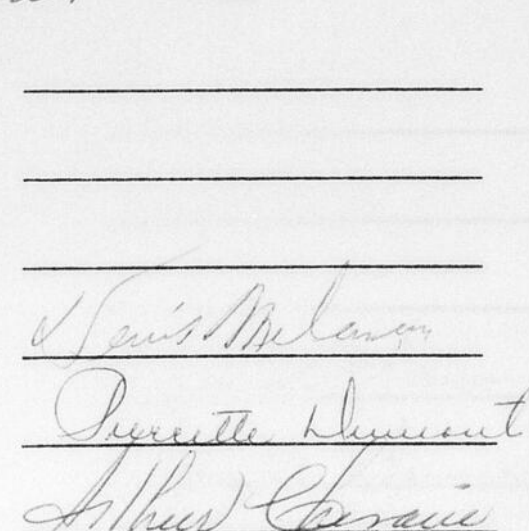 Denis Melanson
Pierrette Dumont
Arthur